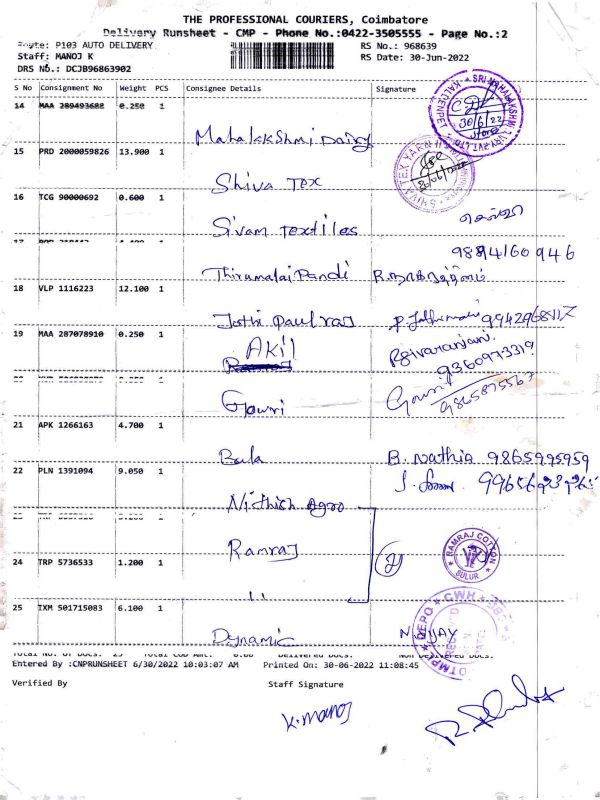 THE PROFESSIONAL COURIERS, Coimbatore
Delivery Runsheet - CMP - Phone No.:0422-3505555 - Page No.:2
Route: P103 AUTO DELIVERY
RS No.: 968639
Staff: MANOJ K
RS Date: 30-Jun-2022
DRS No.: DCJB96863902
S No Consignment No Weight PCS Consignee Details Signature
14 MAA 289493688 0.250 1
Mahalakshmi Dairy
15 PRD 2000059826 13.900 1
Shiva Tex
16 TCG 90000692 0.600 1
Sivam Textiles
9894160946
17
Thirumalai Pandi
18 VLP 1116223 12.100 1
Jothi Paulraj 9942968117
19 MAA 287078910 0.250 1
AKil
9360973319
Gowri Gowri 9865875567
21 APK 1266163 4.700 1
Bala B. Nathia 9865995959
22 PLN 1391094 9.050 1
Nithish Agro
Ramraj
RAMRAJ COTTON
SULUR
24 TRP 5736533 1.200 1
"
25 TXM 501715083 6.100 1
Dynamic N VIJAY
Total No. of Docs. 25 Total COD Amt. 0.00 Delivered Docs. Non Delivered Docs.
Entered By :CNPRUNSHEET 6/30/2022 10:03:07 AM Printed On: 30-06-2022 11:08:45
Verified By Staff Signature
K. Manoj